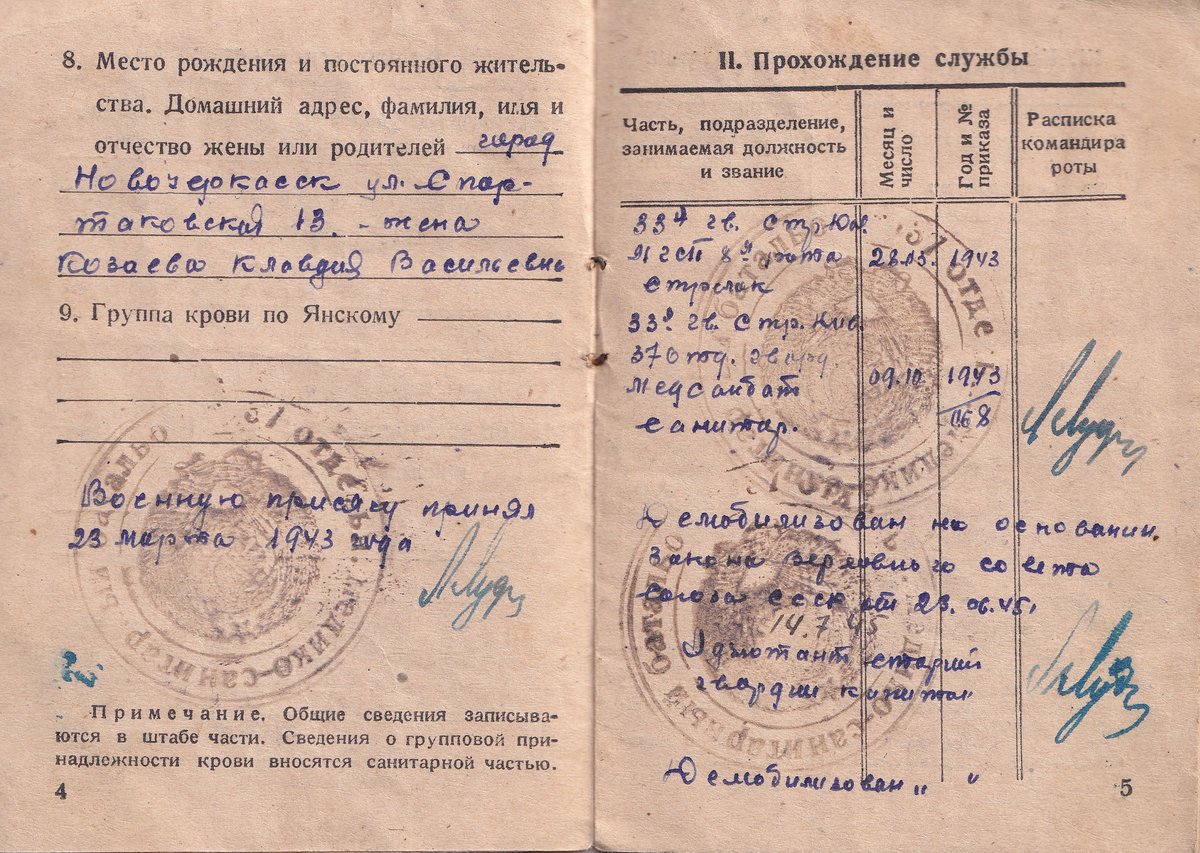 8. Место рождения и постоянного житель-
ства. Домашний адрес, фамилия, имя и
отчество жены или родителей город
Новочеркасск ул. Спар-
таковская 13. - жена
Козаева Клавдия Васильевна
9. Группа крови по Янскому
Военную присягу принял
23 марта 1943 года
Примечание. Общие сведения записыва-
ются в штабе части. Сведения о групповой при-
надлежности крови вносятся санитарной частью.
4
II. Прохождение службы
Часть, подразделение,
занимаемая должность
и звание
Месяц и
число
Год и №
приказа
Расписка
командира
роты
33й гв. стр.
8я рота 1943
стрелок
33й гв. стр.
37 отд. гвард.
Медсанбат 09.10 1943
санитар. 068
Демобилизован на основании
закона верховного совета
союза СССР от 23.06.45.
14.7.45
Адютант старий
гвардии капитан
Демобилизован „ “
5